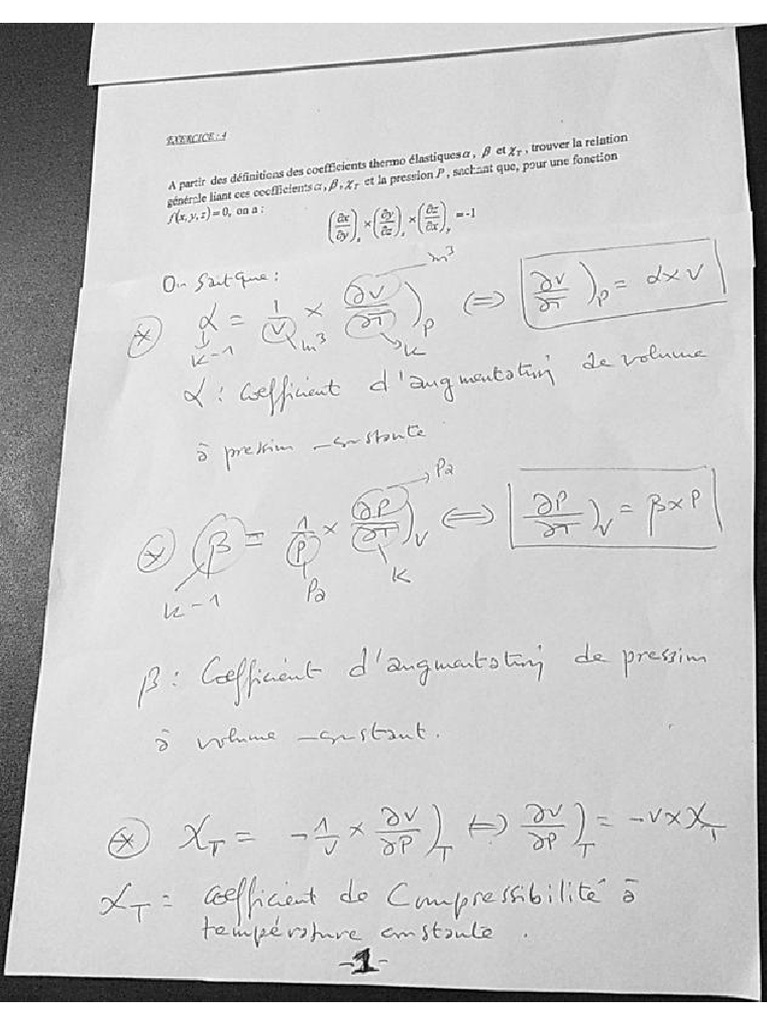 EXERCICE : 4
A partir des définitions des coefficients thermo élastiques α, β et χ_T, trouver la relation
générale liant ces coefficients α, β, χ_T et la pression P, sachant que, pour une fonction
f(x,y,z)=0, on a :
(∂x/∂y)_z × (∂y/∂z)_x × (∂z/∂x)_y = -1
On sait que :
m³
* α = 1/V × ∂V/∂T)_P ⟺ ∂V/∂T)_P = α × V
K-1 m³ K
α : Coefficient d'augmentation de volume
à pression constante
Pa
* β = 1/P × ∂P/∂T)_V ⟺ ∂P/∂T)_V = β × P
K-1 Pa K
β : Coefficient d'augmentation de pression
à volume constant.
* χ_T = -1/V × ∂V/∂P)_T ⟺ ∂V/∂P)_T = -V × χ_T
χ_T = Coefficient de Compressibilité à
température constante.
-1-